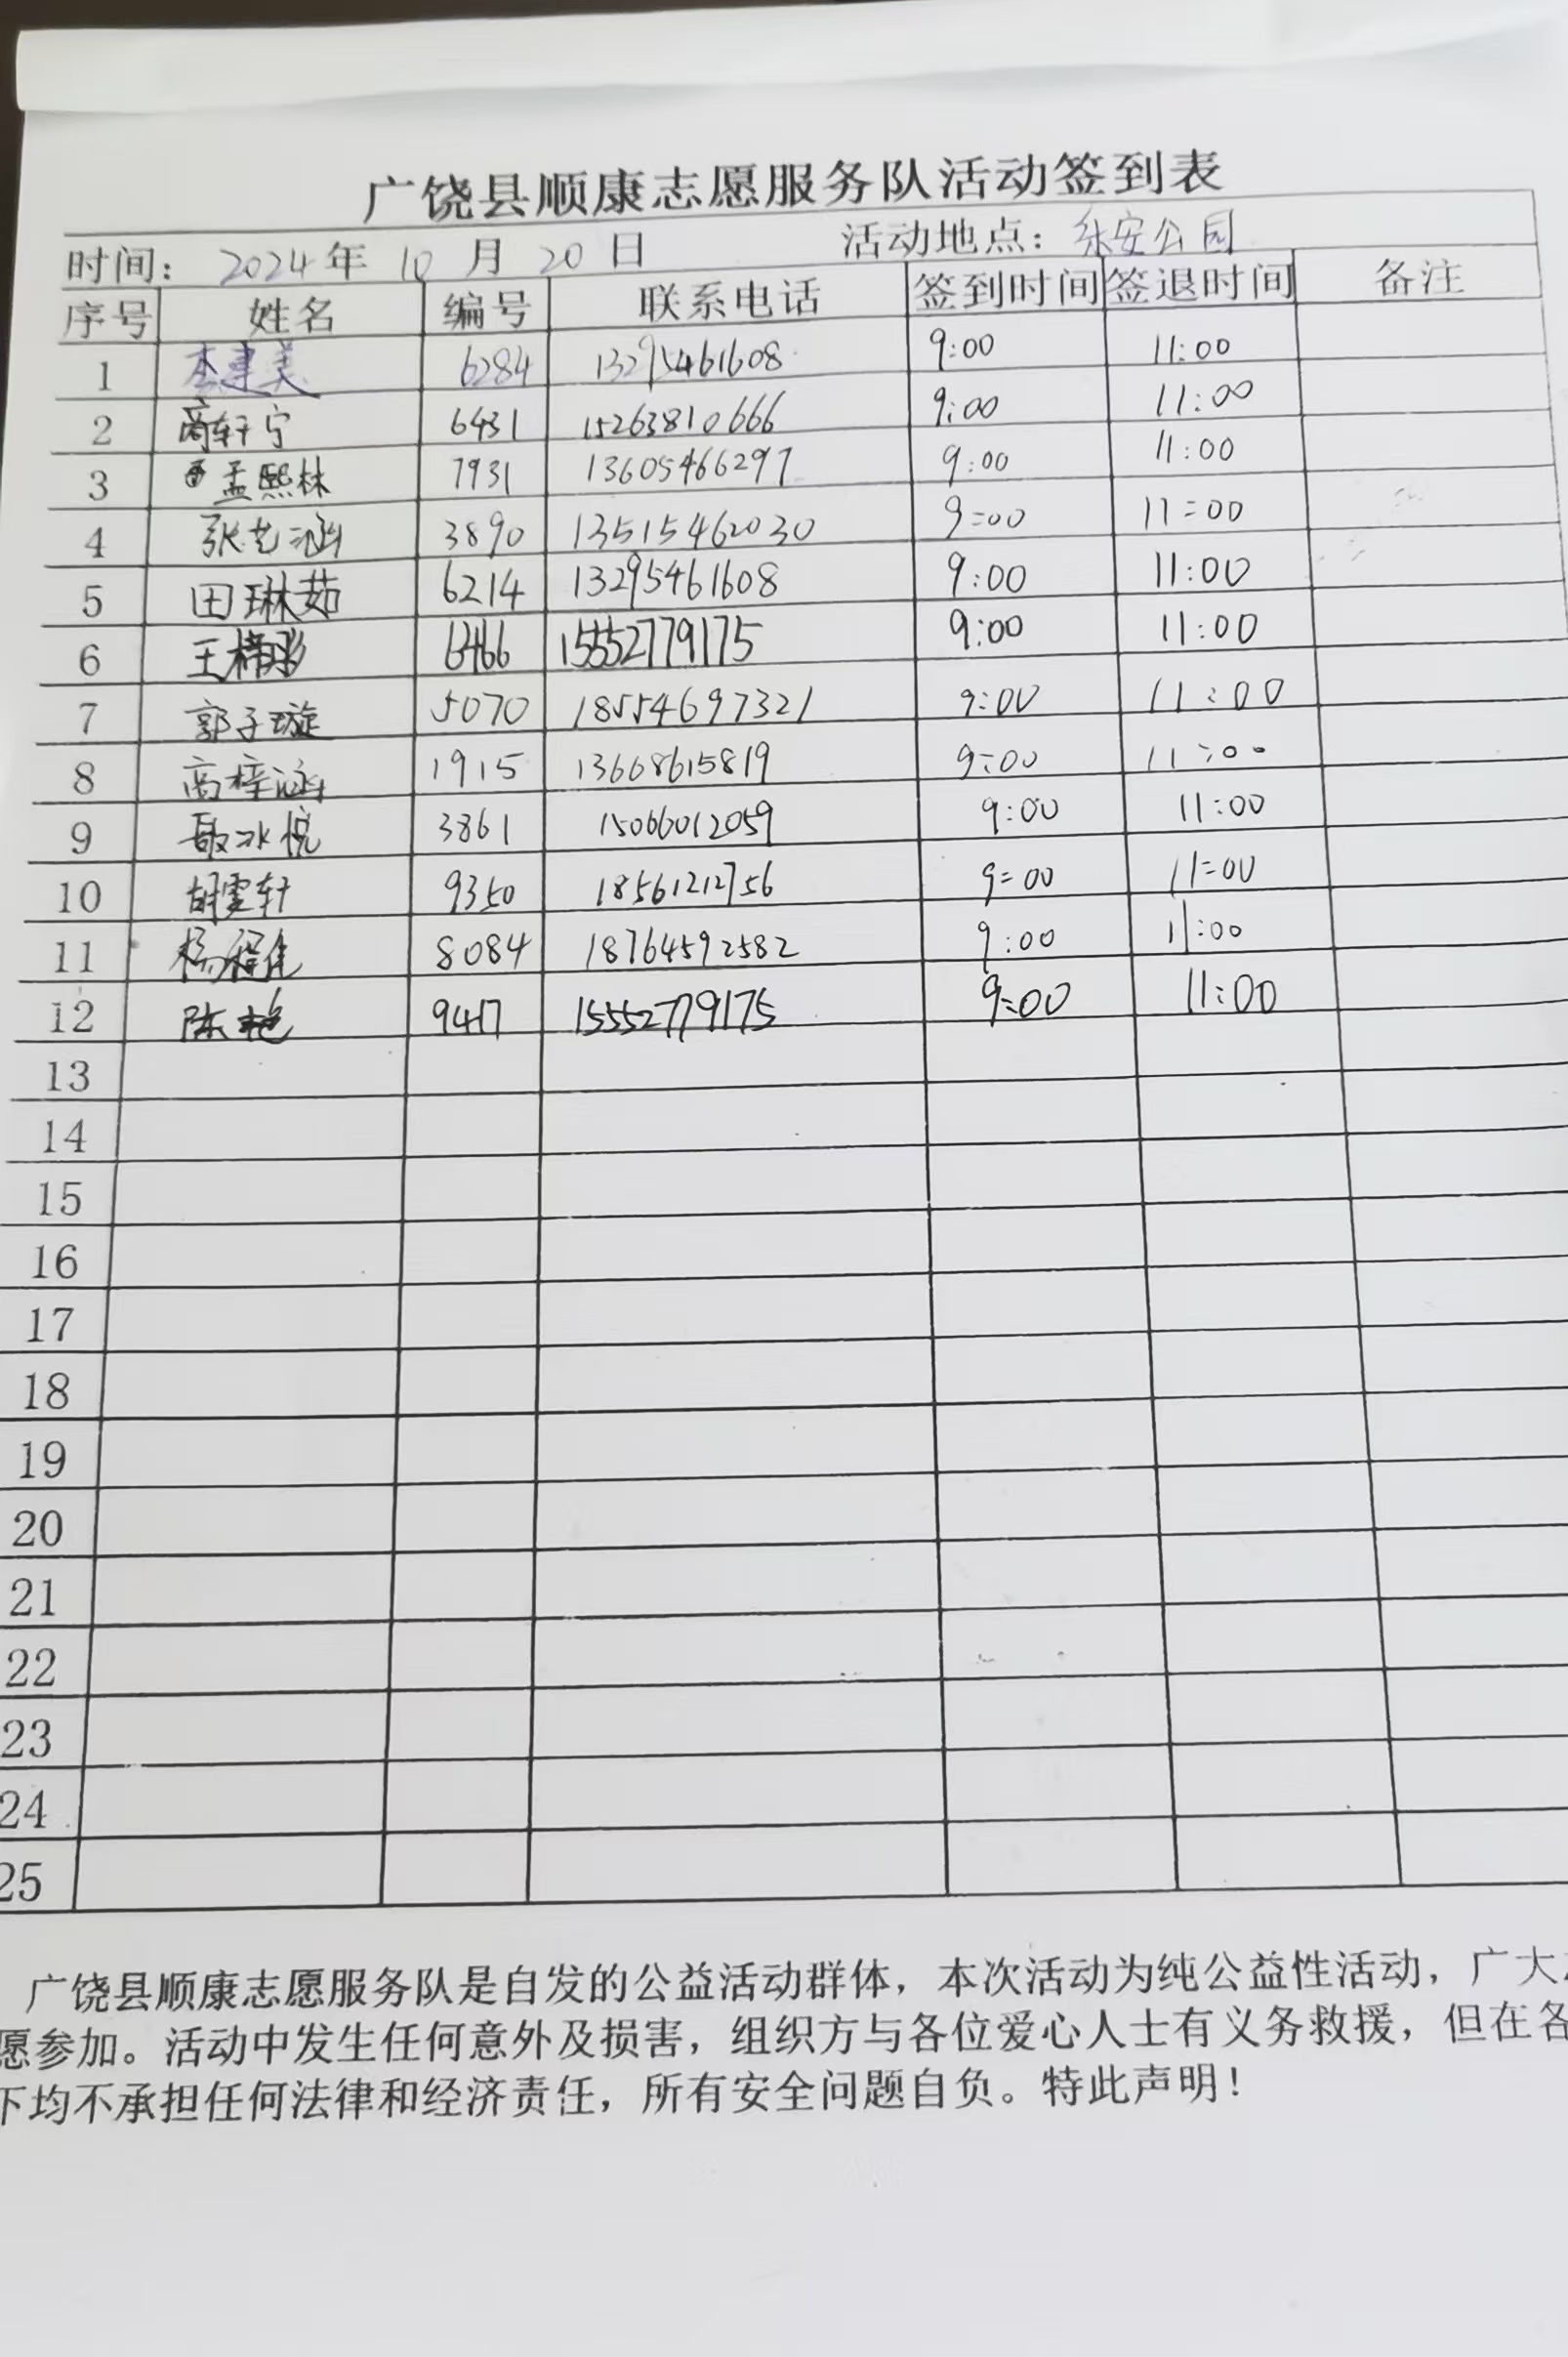 广饶县顺康志愿服务队活动签到表
时间： 2024 年 10 月 20 日 活动地点：乐安公园
序号 姓名 编号 联系电话 签到时间 签退时间 备注
1 李建美 6284 13295461608 9:00 11:00
2 商轩宁 6431 15263810666 9:00 11:00
3 孟熙林 7931 13605466297 9:00 11:00
4 张艺涵 3890 13515462030 9:00 11:00
5 田琳茹 6214 13295461608 9:00 11:00
6 王梓彤 6466 15552779175 9:00 11:00
7 郭子璇 5070 18554697321 9:00 11:00
8 高梓涵 1915 13668615819 9:00 11:00
9 冰悦 3861 15066012059 9:00 11:00
10 胡雯轩 9350 18561212756 9:00 11:00
11 杨程 8084 18764592582 9:00 11:00
12 陈 9417 15552779175 9:00 11:00
13
14
15
16
17
18
19
20
21
22
23
24
25
广饶县顺康志愿服务队是自发的公益活动群体，本次活动为纯公益性活动，广大
愿参加。活动中发生任何意外及损害，组织方与各位爱心人士有义务救援，但在各
下均不承担任何法律和经济责任，所有安全问题自负。特此声明！